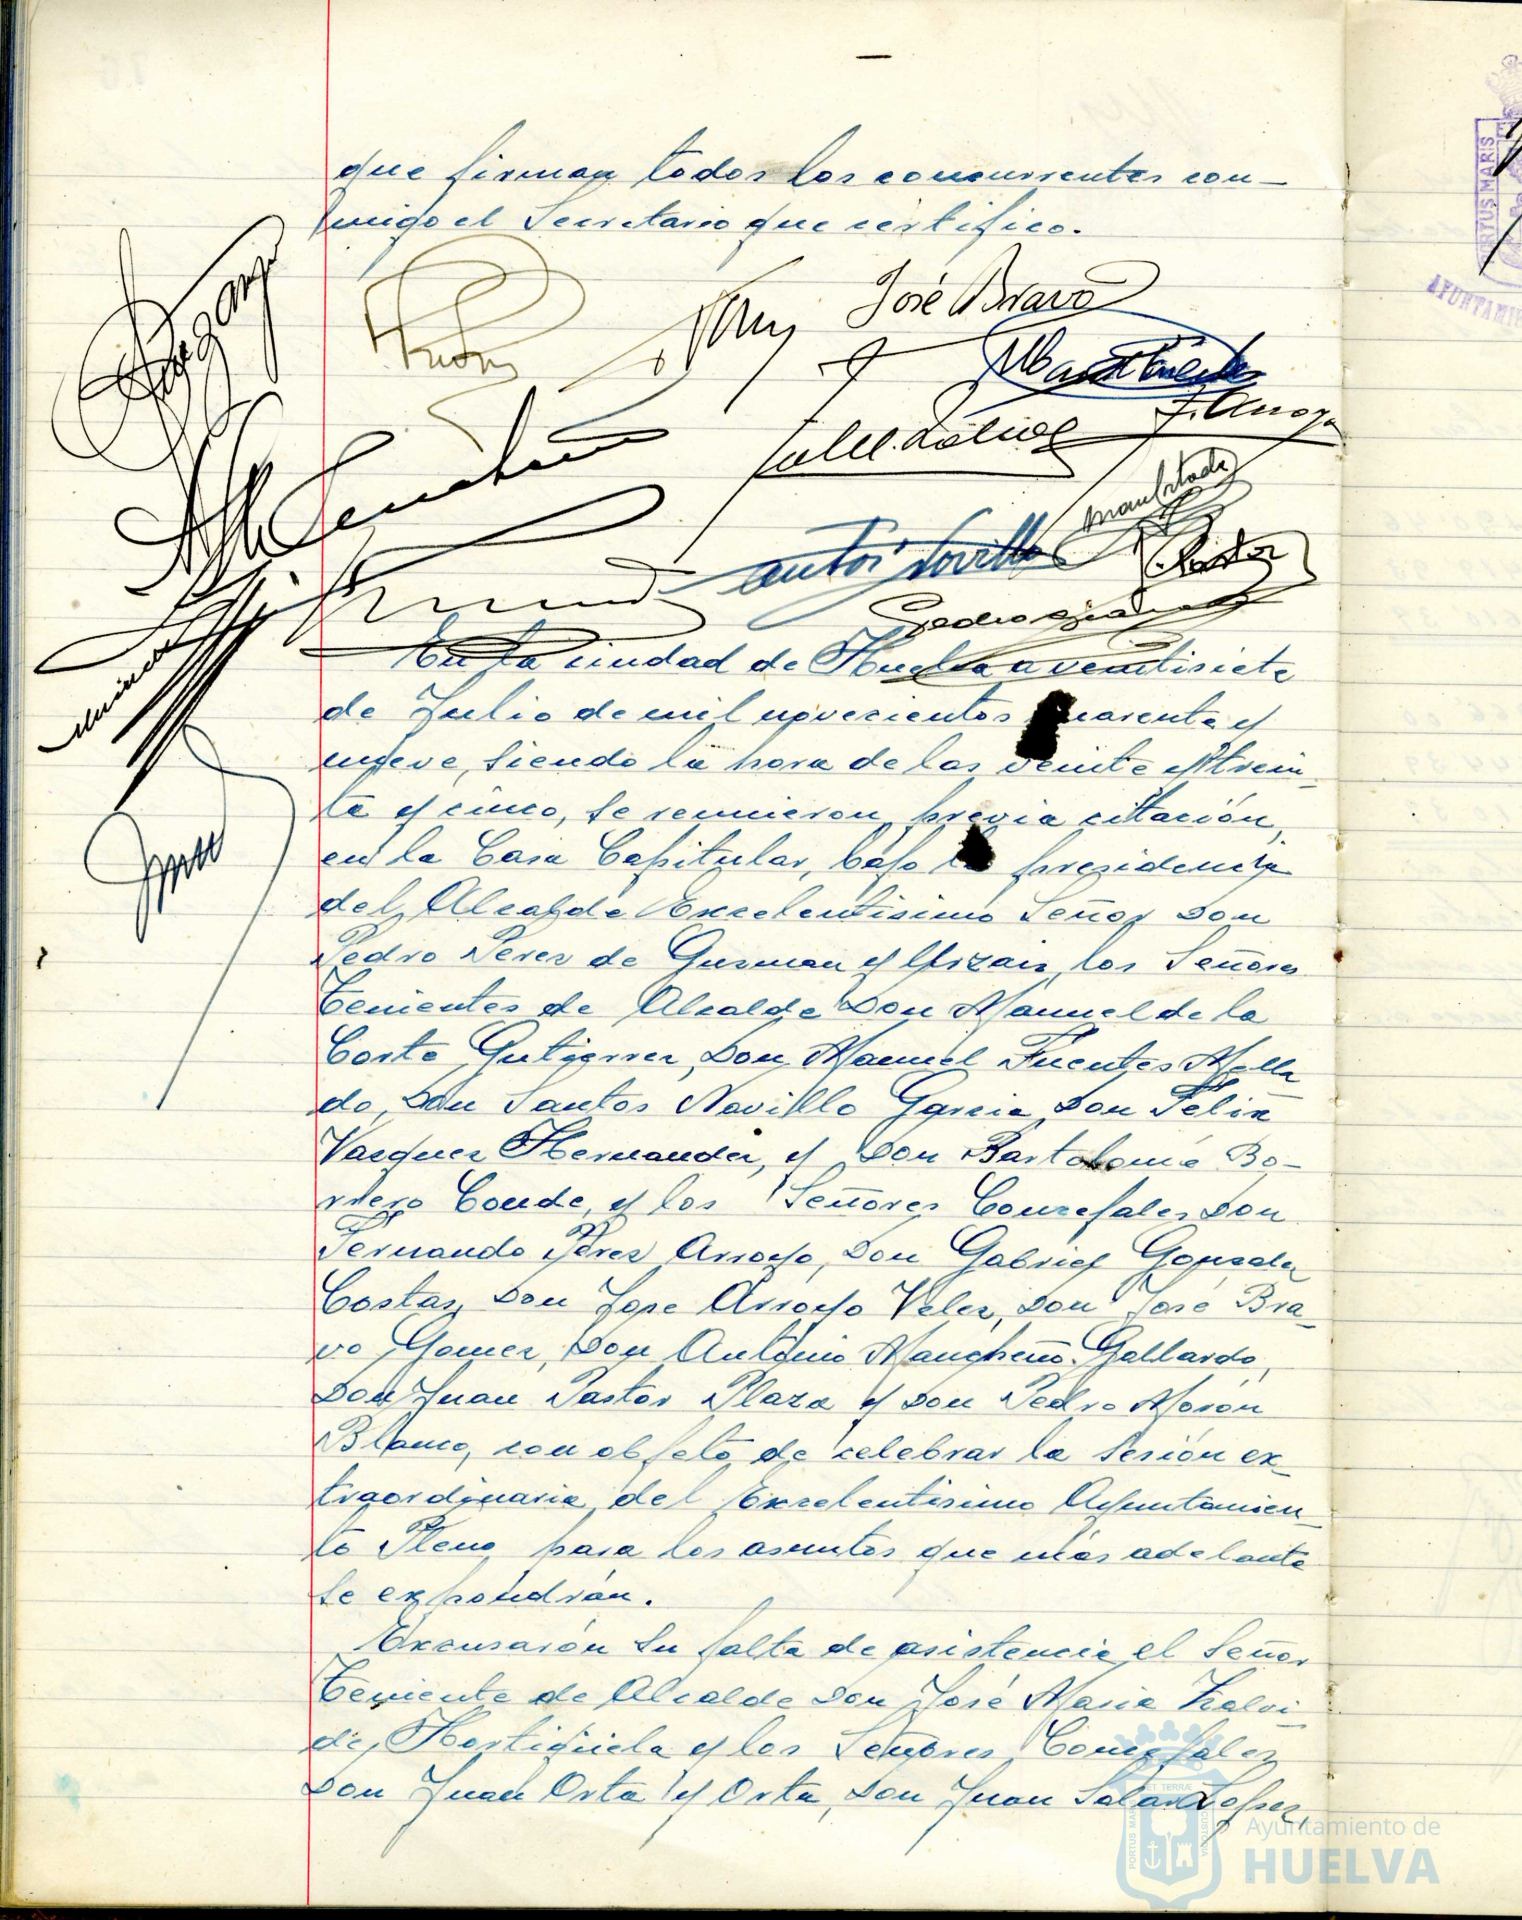 que firman todos los concurrentes con-
migo el Secretario que certifico.
José Bravo
F. Arroyo
Pastor
En la ciudad de Huelva a veintisiete
de Julio de mil novecientos cuarenta y
nueve, siendo la hora de las veinte y trein-
ta y cinco, se reunieron previa citación,
en la Casa Capitular, bajo la presidencia
del Alcalde Excelentisimo Señor Don
Pedro Perez de Guzman y Urzaiz, los Señores
Tenientes de Alcalde Don Manuel de la
Corte Gutierrez, Don Manuel Fuentes Mella
do, Don Santos Novillo Garcia, Don Felix
Vazquez Hernandez, y Don Bartolomé Bo-
rrero Conde, y los Señores Concejales Don
Fernando Perez Arroyo, Don Gabriel Gonzalez
Costas, Don Jose Arroyo Velez, Don José Bra-
vo Gomez, Don Antonio Mancheño Gallardo,
Don Juan Pastor Plaza y Don Pedro Morón
Blanco, con objeto de celebrar la sesión ex-
traordinaria del Excelentisimo Ayuntamien-
to Pleno, para los asuntos que más adelante
se expondrán.
Excusarón su falta de asistencia el Señor
Teniente de Alcalde Don José Maria
de Hortigüela y los Señores Concejales
Don Juan Orta y Orta, Don Juan Salas Lopez,
Ayuntamiento de
HUELVA